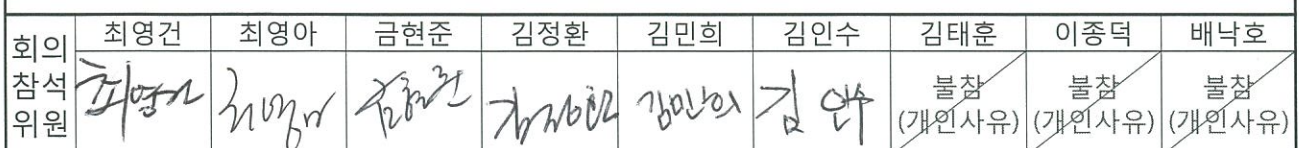 회의 참석 위원
최영건 최영아 금현준 김정환 김민희 김인수 김태훈 이종덕 배낙호
최영건 최영아 금현준 김정환 김민희 김인수 불참 불참 불참
(개인사유) (개인사유) (개인사유)